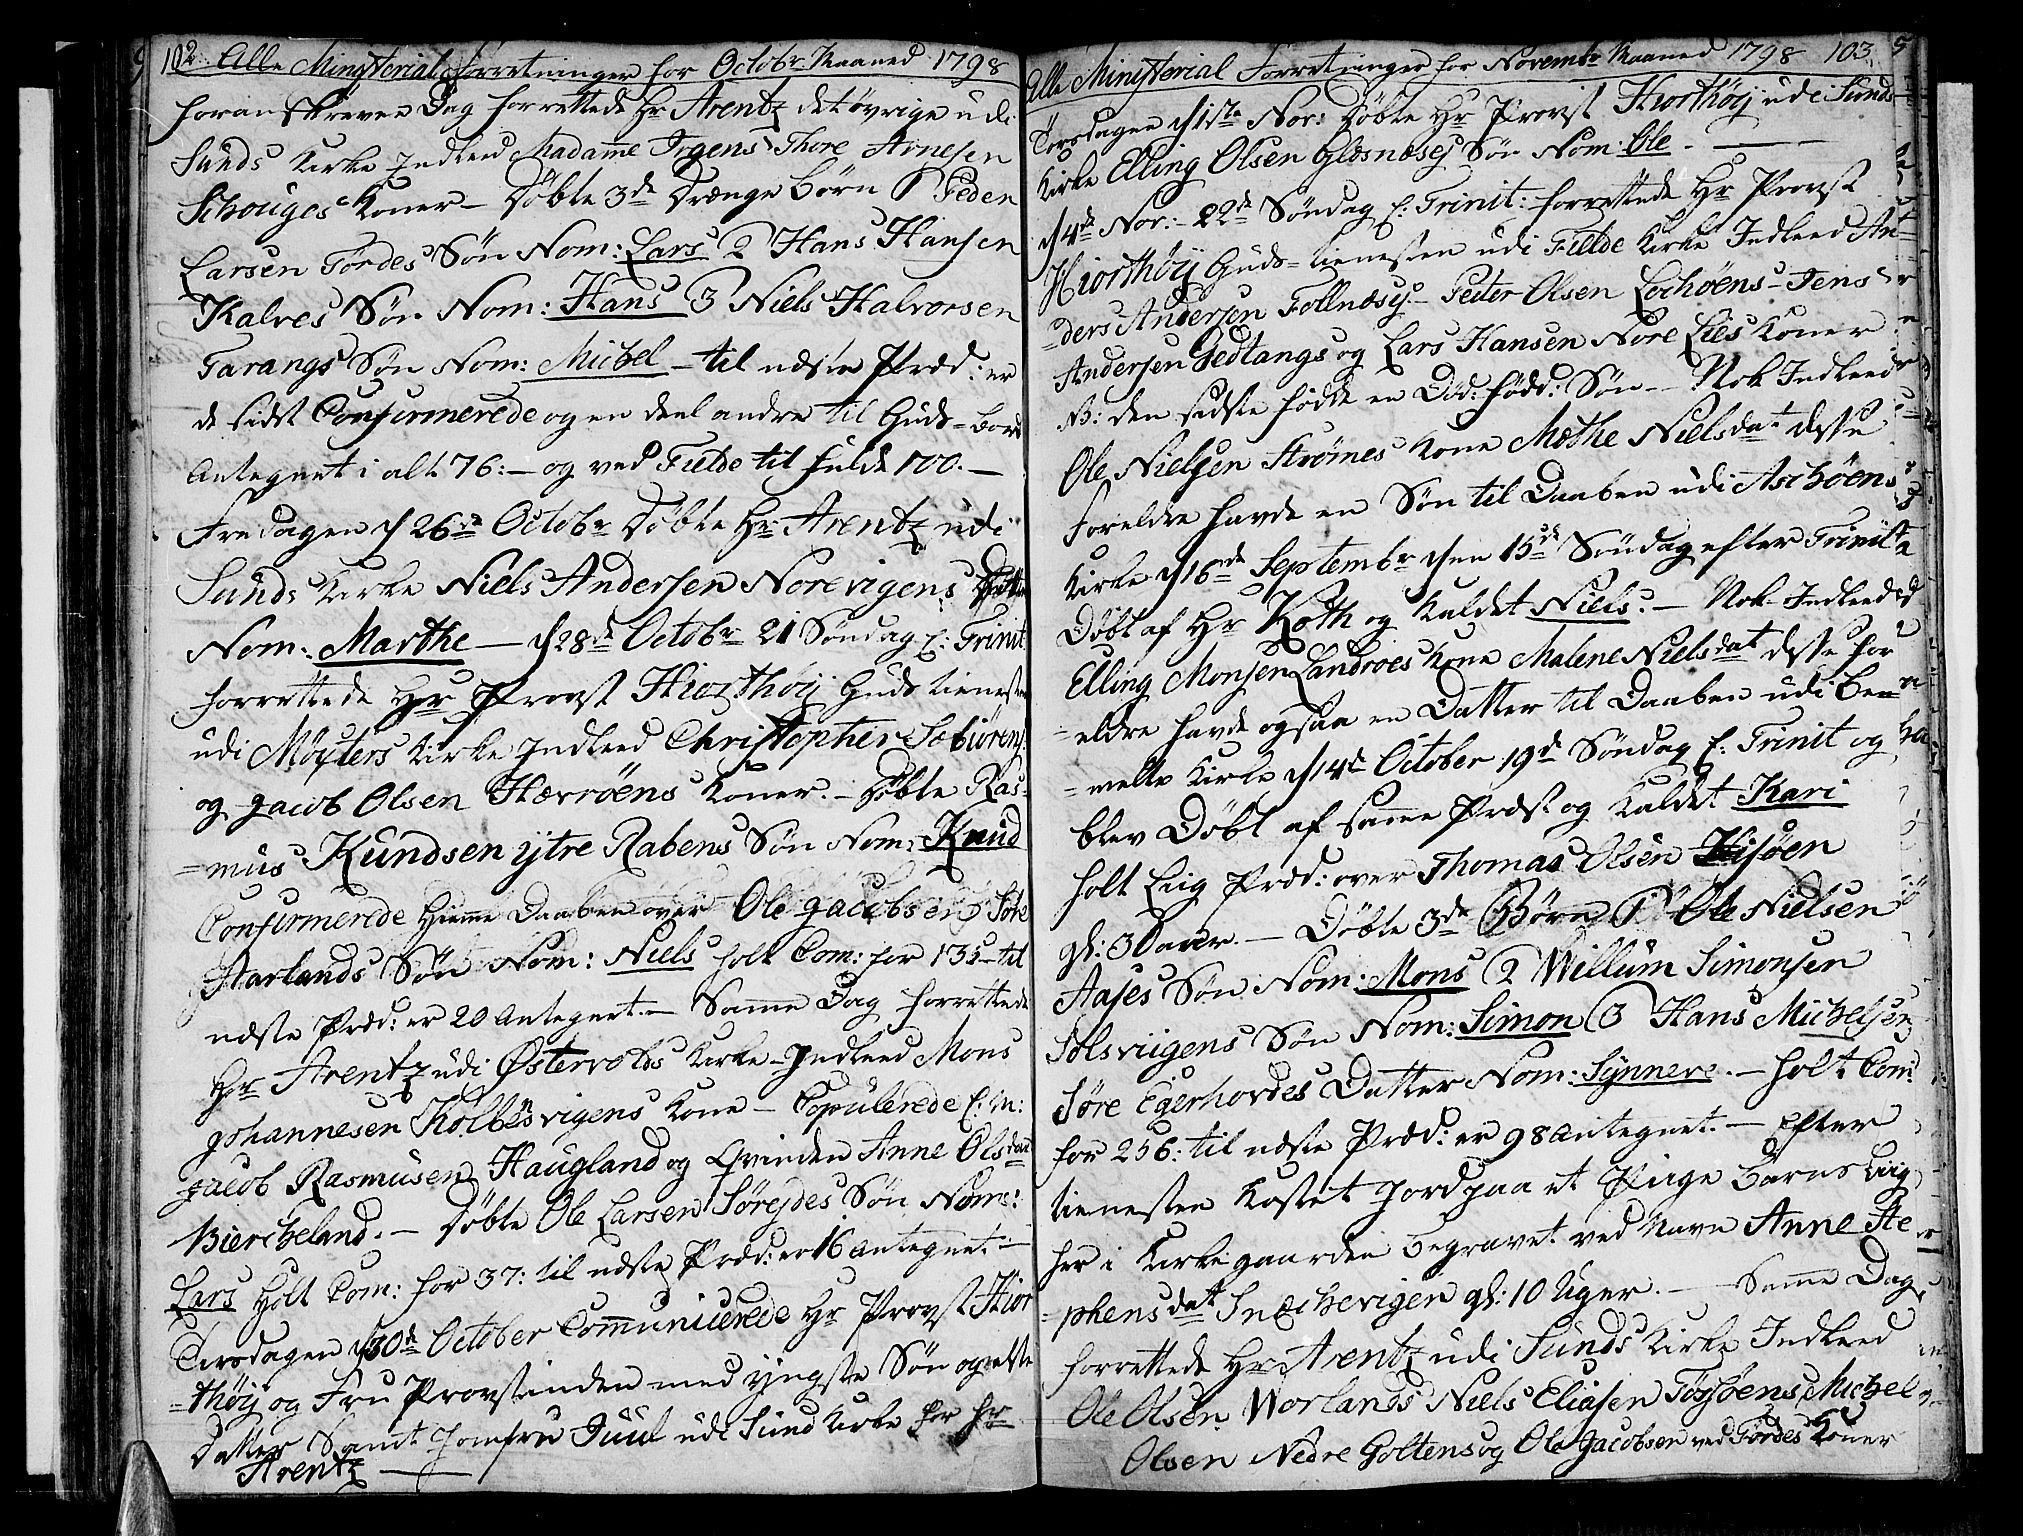 102. Alle Ministerial Forretninger for Octobr Maaned 1798
foranskrevne Dag forrettede Hr Arentz det övrige udi
Sunds Kirke Indleed Madame Irgens Thore Arnesen
Schouges Koner - Döbte 3de Drænge Börn 1 Peder
Larsen Fördes Sön Nom: Lars 2 Hans Hansen
Kalves Sön Nom: Hans 3 Niels Halvorsen
Tarangs Sön Nom: Michel - til næste Præd: er
de sidst Confirmerede og en deel andre til Guds-bord
Antegnet i alt 76: - og ved Fielde til fulde 100. -
Fredagen d 26de Octobr Döbte Hr Arentz udi
Sunds Kirke Niels Andersen Norevigens Datter
Nom: Marthe - d 28de Octobr 21 Söndag E: Trinit
forrettede Hr Provst Hiorthöÿ Guds tienesten
udi Möcters Kirke Indleed Christopher Sebiörens:
og Jacob Olsen Hærröens Koner. - Döbte Ras-
=mus Kundsen ÿtre Rabens Sön Nom: Knud
Confirmerede Hiemme Daaben over Ole Jacobsen Söre
Harlands Sön Nom: Niels holt Com: for 135 - til
næste Præd: er 20 Antegnet. - Samme Dag forrettede
Hr Arentz udi Østervolds Kirke - Indleed Mons
Johannesen Kolbesvigens Kone - Copulerede E: M:
Jacob Rasmusen Haugland og Qvinden Anne Olsdat
Biercheland. - Döbte Ole Larsen Sörejdes Sön Nom:
Lars Holt Com: for 37: til næste Præd: er 16 Antegnet -
Tirsdagen d 30de October Communicerede Hr Provst Hior
=thöÿ og Fru Provstinden med ÿngste Sön og ældste
Datter Samt Jomfru Juul udi Sund Kirke for Hr
Arentz -
Alle Ministerial Forretninger for Novembr Maaned 1798 103.
Torsdagen d 1ste Nov: Döbte Hr Provst Hiorthöÿ udi Sunds
Kirke Elling Olsen Glæsnæsej Sön Nom: Ole. -
d 4de Nov: - 22de Söndag E: Trinit: forrettede Hr Provst
Hiorthöÿ Guds-tienesten udi Fielde Kirke Indleed An=
=ders Andersen Follnæsej - Peder Olsen Lochöens - Jens
Andersen Gedtangs og Lars Hansen Nore Lies Koner
NB: den sidste födde en Död-född: Sön - Nok Indleed
Ole Nielsen Strömes Kone Methe Nielsdat desse
Foreldre havde en Sön til Daaben udi Aschöens
Kirke d 16de Septembr den 15de Söndag efter Trinit
Döbt af Hr Koth og Kaldet Niels. - Nok Indleed
Elling Monsen Landroes Kone Malene Nielsdat desse for
=eldre havde ogsaa en Datter til Daaben udi be=
=melte Kirke d 14de October 19de Söndag E: Trinit og
blev Döbt af samme Præst og Kaldet Kari
holt Liig Præd: over Thomas Olsen Hisöen
gl: 30 Aar. - Döbte 3de Börn 1 Ole Nielsen
Aases Sön Nom: Mons 2 Willum Simonsen
Solsviigens Sön Nom: Simon 3 Hans Michelsen
Söre Egerhovdes Datter Nom: Synneve. - holt Com:
for 256: til næste Præd: er 98 Antegnet. - Efter
tienesten Kastet Jord paa et Piige Barns Liig
her i Kirkegaarden begravet ved Navn Anne Ste
=phensdat Snechevigen gl: 10 Uger. - Samme Dag
forrettede Hr Arentz udi Sunds Kirke Indleed
Ole Olsen Vorlands Niels Eliasen Tösöens Michel
Olsen Nedre Goltens og Ole Jacobsen ved Fördes Koner